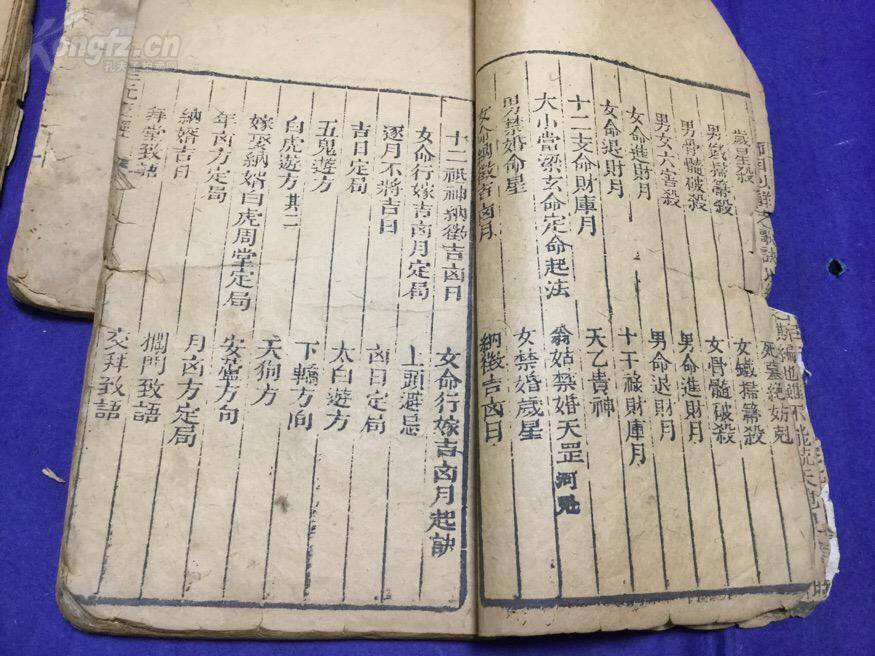 Kongfz.cn
歲星殺
死墓絕妨剋
男鐵掃箒殺
女鐵掃箒殺
男骨髓破殺
女骨髓破殺
男女六害殺
男命進財月
女命進財月
男命退財月
女命退財月
十干祿財庫月
十二支命財庫月
天乙貴神
大小當梁玄命定命起法
翁姑禁婚天罡河魁
男禁婚命星
女禁婚歲星
女命納徵吉凶月
納徵吉凶日
十二祇神納徵吉凶日
女命行嫁吉凶月起訣
女命行嫁吉凶月定局
上頭避忌
逐月不將吉日
凶日定局
吉日定局
太白遊方
五鬼遊方
下轎方向
白虎遊方其二
天狗方
嫁娶納婿白虎周堂定局
安牀方向
年凶方定局
月凶方定局
納婿吉日
攔門致語
拜堂致語
交拜致語